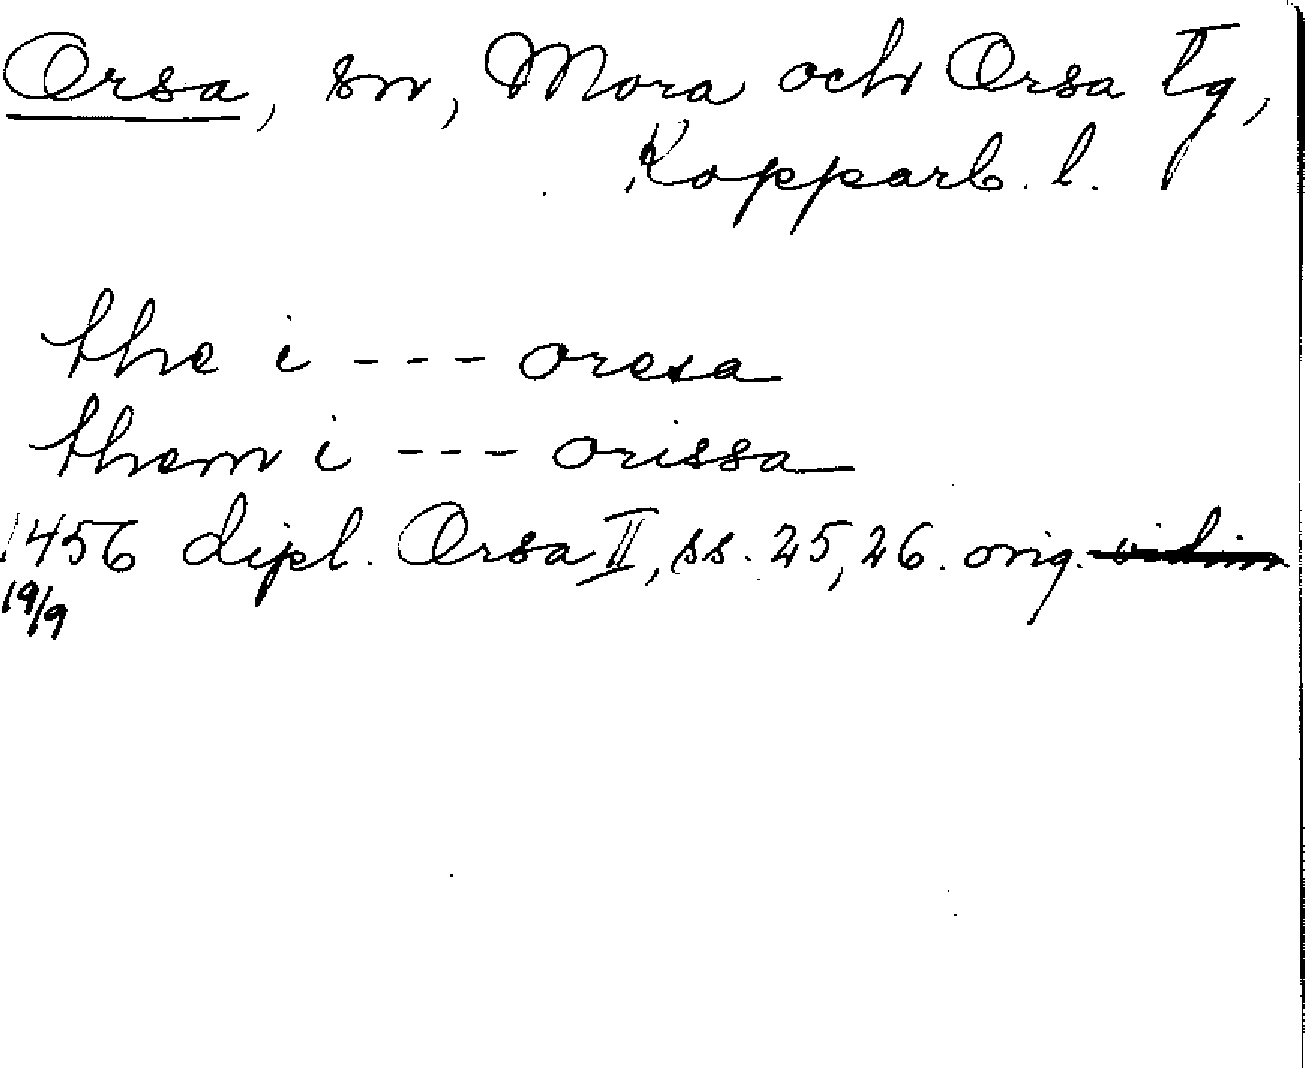 Orsa, sn, Mora och Orsa Tg,
Kopparb. l.
the i --- oresa
them i --- orissa
1456 dipl. Orsa II, ss. 25, 26. orig.
19/9